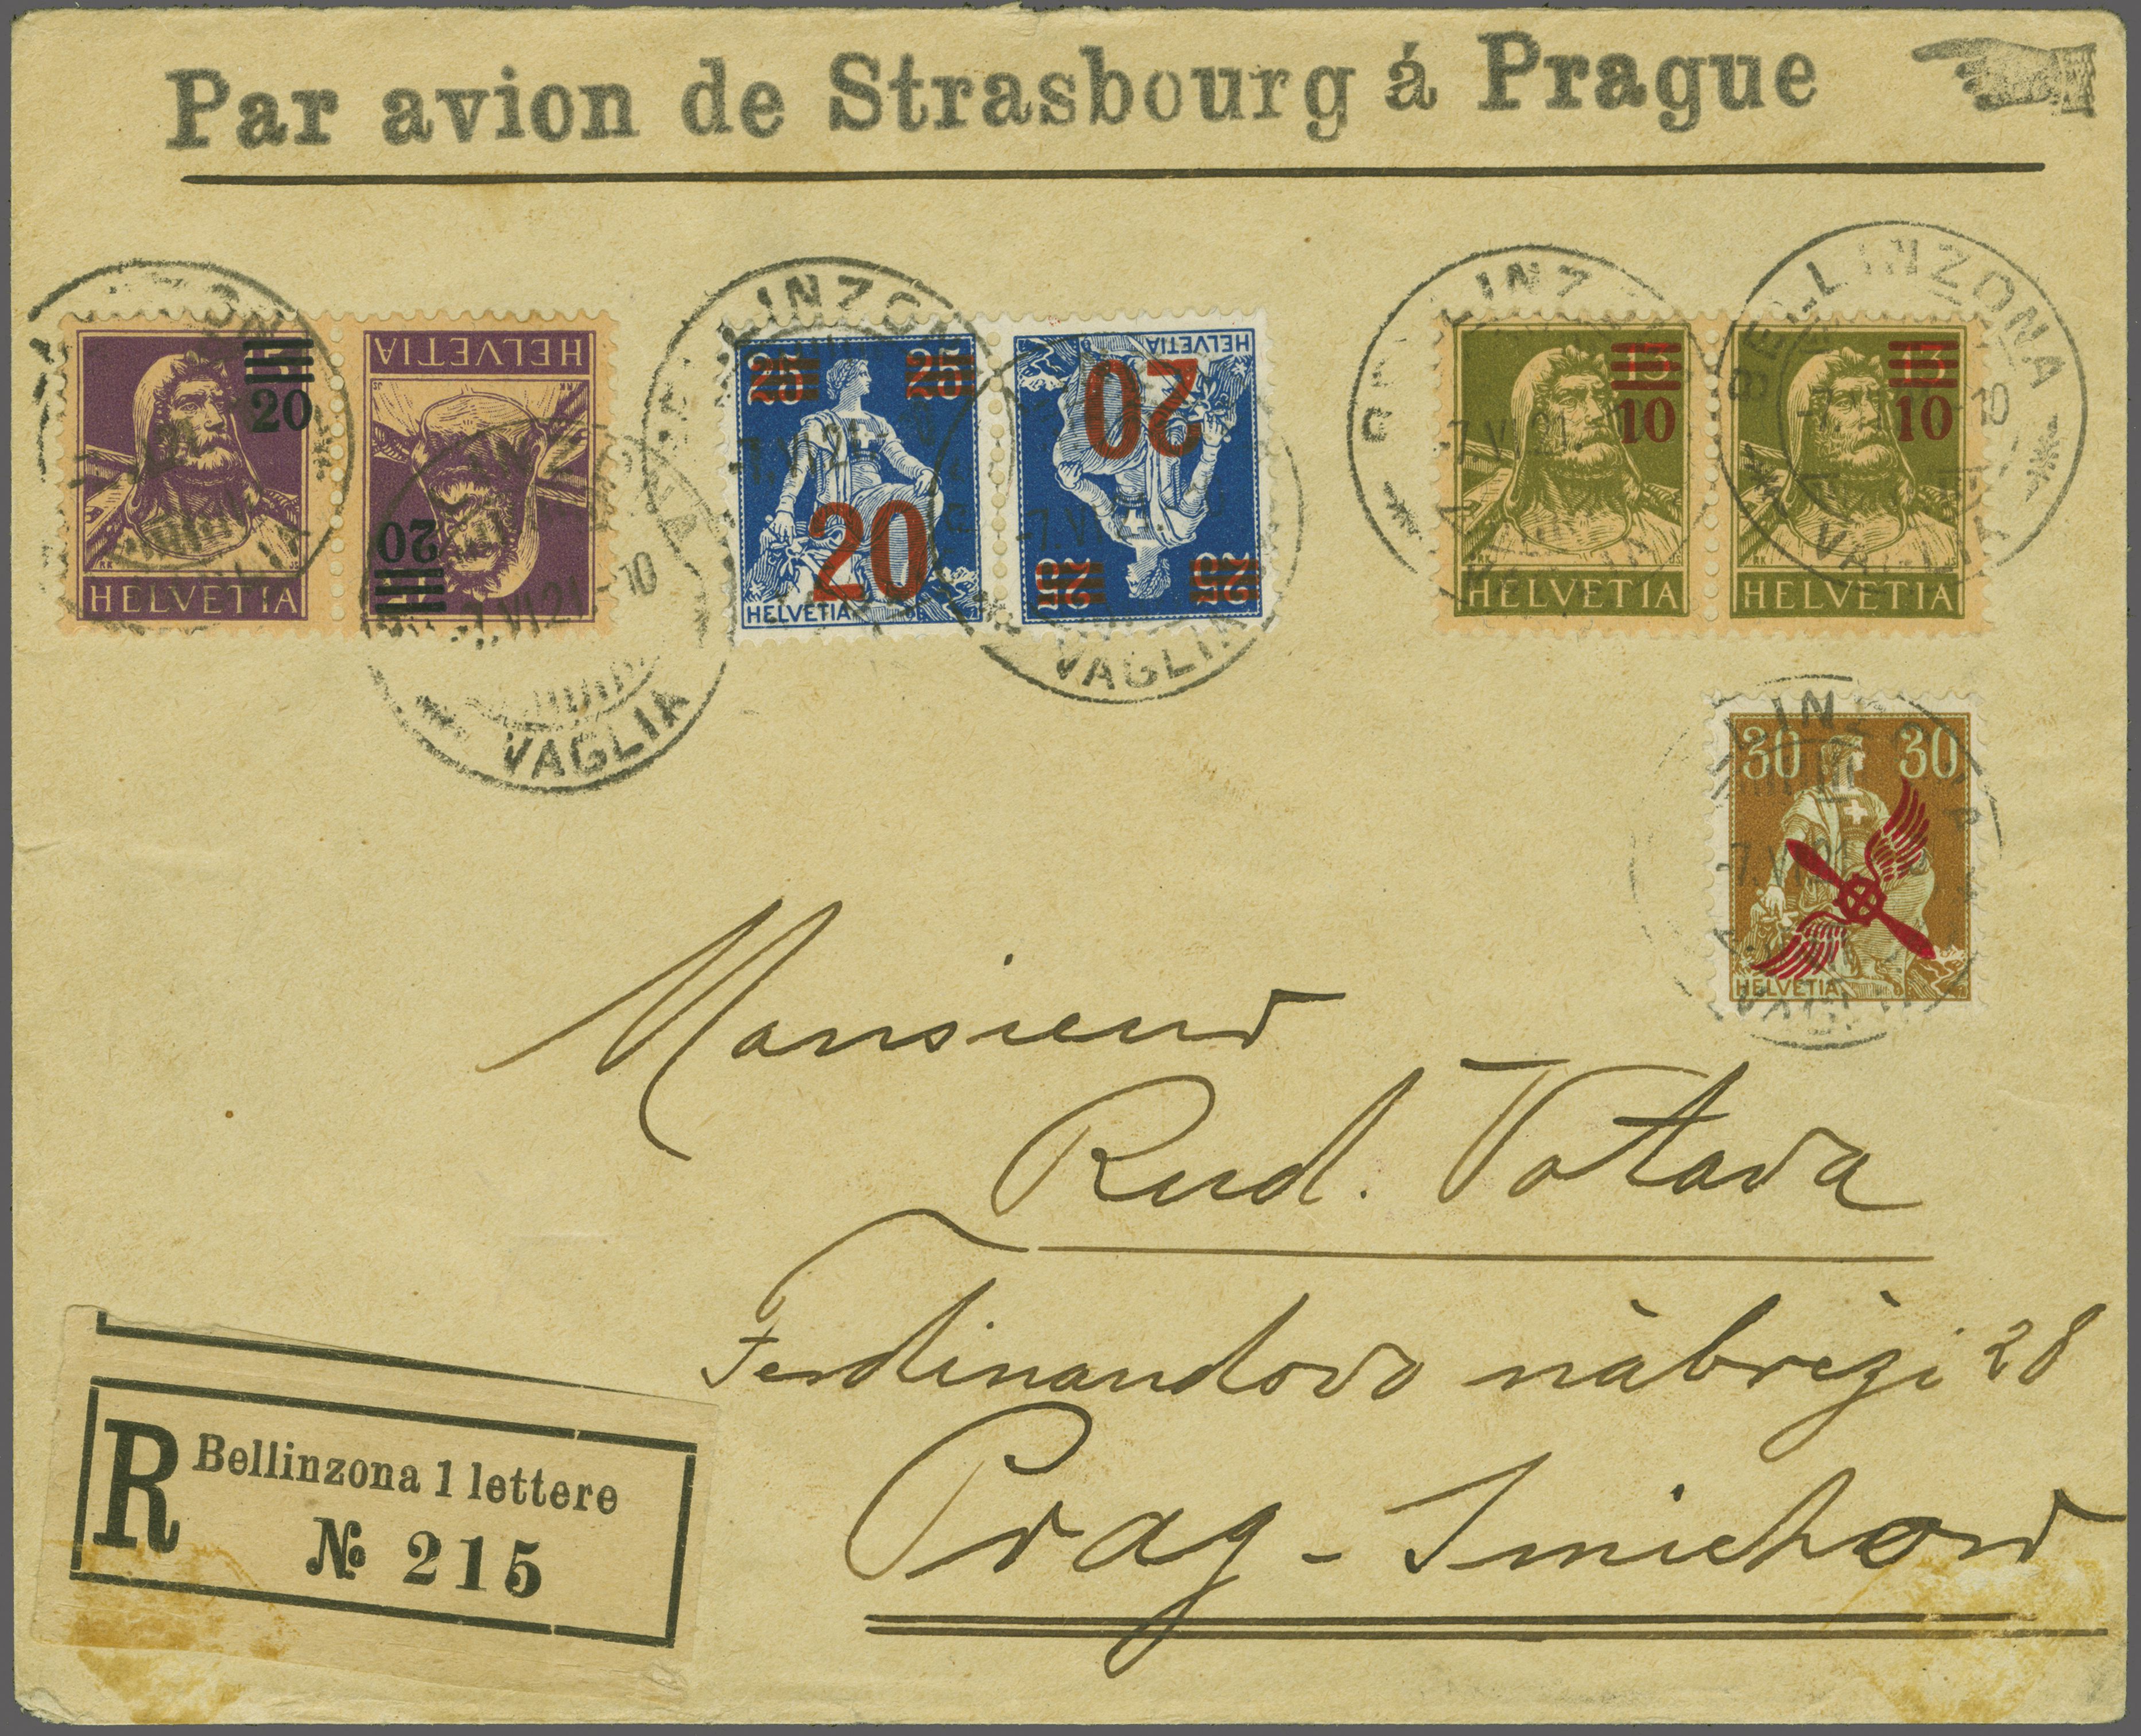 Par avion de Strasbourg á Prague
15
20
HELVETIA
HELVETIA
20
25 25
20
HELVETIA
HELVETIA
20
25 25
13
10
HELVETIA
13
10
HELVETIA
BELLINZONA
-7.VI.21.-10
VAGLIA
30 30
HELVETIA
Monsieur
Rud. Votava
Ferdinandovo nàbrèzi 28
Prag - Smichow
R Bellinzona 1 lettere
№ 215